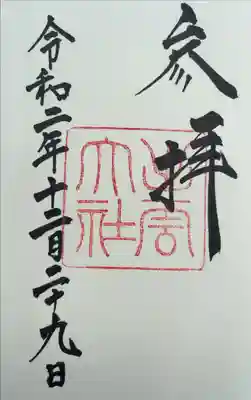 参拝
出雲
大社
令和二年十二月二十九日